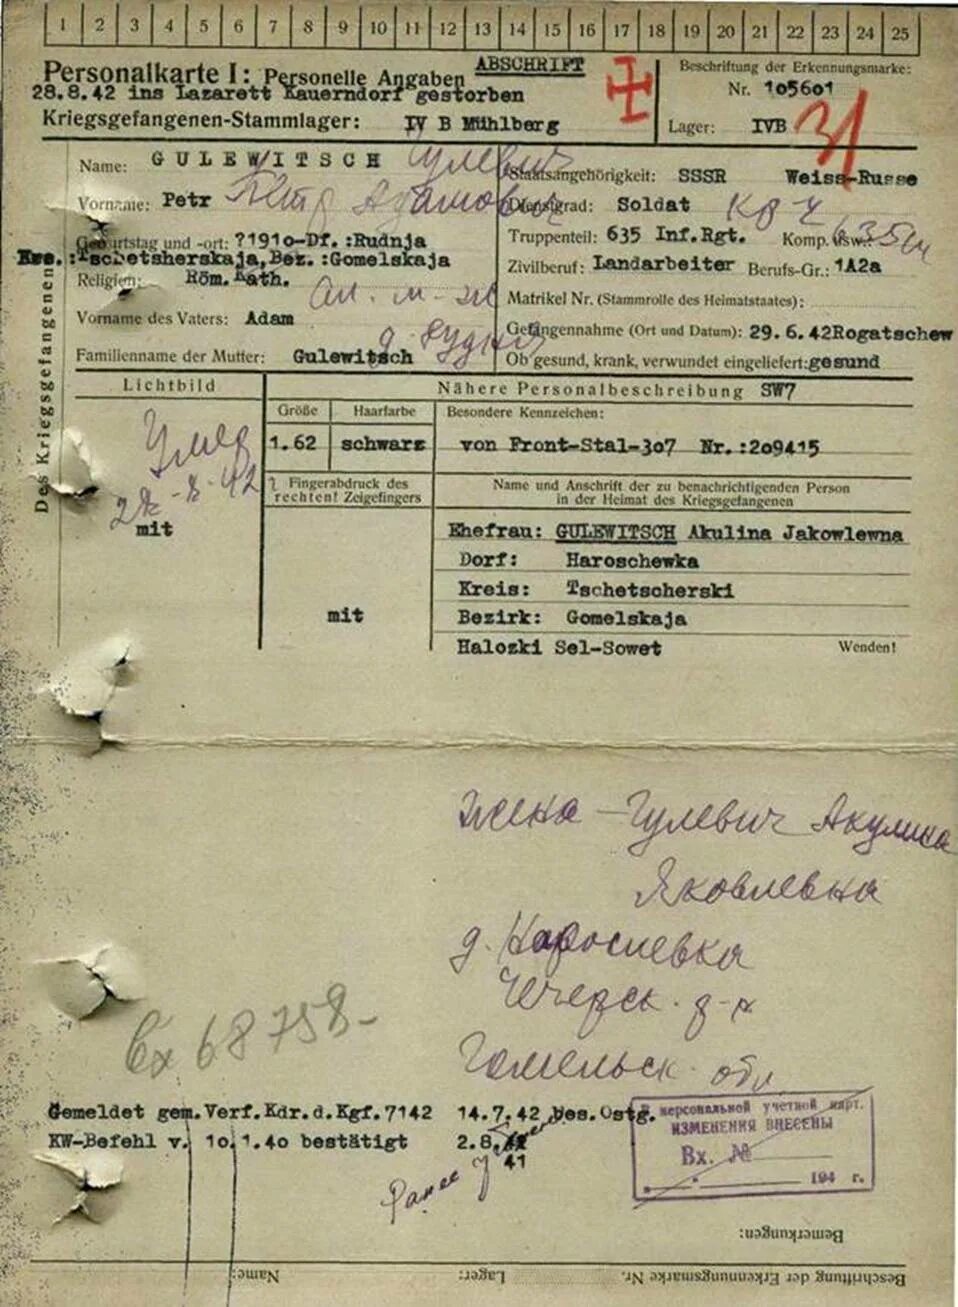 1 2 3 4 5 6 7 8 9 10 11 12 13 14 15 16 17 18 19 20 21 22 23 24 25
Personalkarte I: Personelle Angaben
ABSCHRIFT
28.8.42 ins Lazarett Kauerndorf gestorben
Kriegsgefangenen-Stammlager: IV B Mühlberg
Beschriftung der Erkennungsmarke:
Nr. 105601
Lager: IVB
Des Kriegsgefangenen
Name: GULEWITSCH Гулевич
Vorname: Petr Петр Адамович
Geburtstag und -ort: ?1910-Df.:Rudnja
Krs.:Tschetsherskaja, Bez.:Gomelskaja
Religion: Röm. Kath.
Vorname des Vaters: Adam
Familienname der Mutter: Gulewitsch
Staatsangehörigkeit: SSSR Weiss-Russe
Dienstgrad: Soldat
Truppenteil: 635 Inf.Rgt. Komp. usw.:
Zivilberuf: Landarbeiter Berufs-Gr.: 1A2a
Matrikel Nr. (Stammrolle des Heimatstaates):
Gefangennahme (Ort und Datum): 29.6.42Rogatschew
Ob gesund, krank, verwundet eingeliefert: gesund
Lichtbild
Умер
mit
Nähere Personalbeschreibung SW7
Größe Haarfarbe Besondere Kennzeichen:
1.62 schwarz von Front-Stal-307 Nr.:209415
Fingerabdruck des
rechten! Zeigefingers
mit
Name und Anschrift der zu benachrichtigenden Person
in der Heimat des Kriegsgefangenen
Ehefrau: GULEWITSCH Akulina Jakowlewna
Dorf: Haroschewka
Kreis: Tschetscherski
Bezirk: Gomelskaja
Halozki Sel-Sowet
Wenden!
жена - Гулевич Акулина
Яковлевна
д.
Чечерск. р-н
Гомельск. обл
Вх 68758-
Gemeldet gem. Verf. Kdr. d. Kgf. 7142 14.7.42 Bes. Ostg.
KW-Befehl v. 10.1.40 bestätigt 2.8.
41
Ранее
персональной учетной карт.
ИЗМЕНЕНИЯ ВНЕСЕНЫ
Вх. №
194 г.
Bemerkungen:
Name:
Lager:
Beschriftung der Erkennungsmarke Nr.